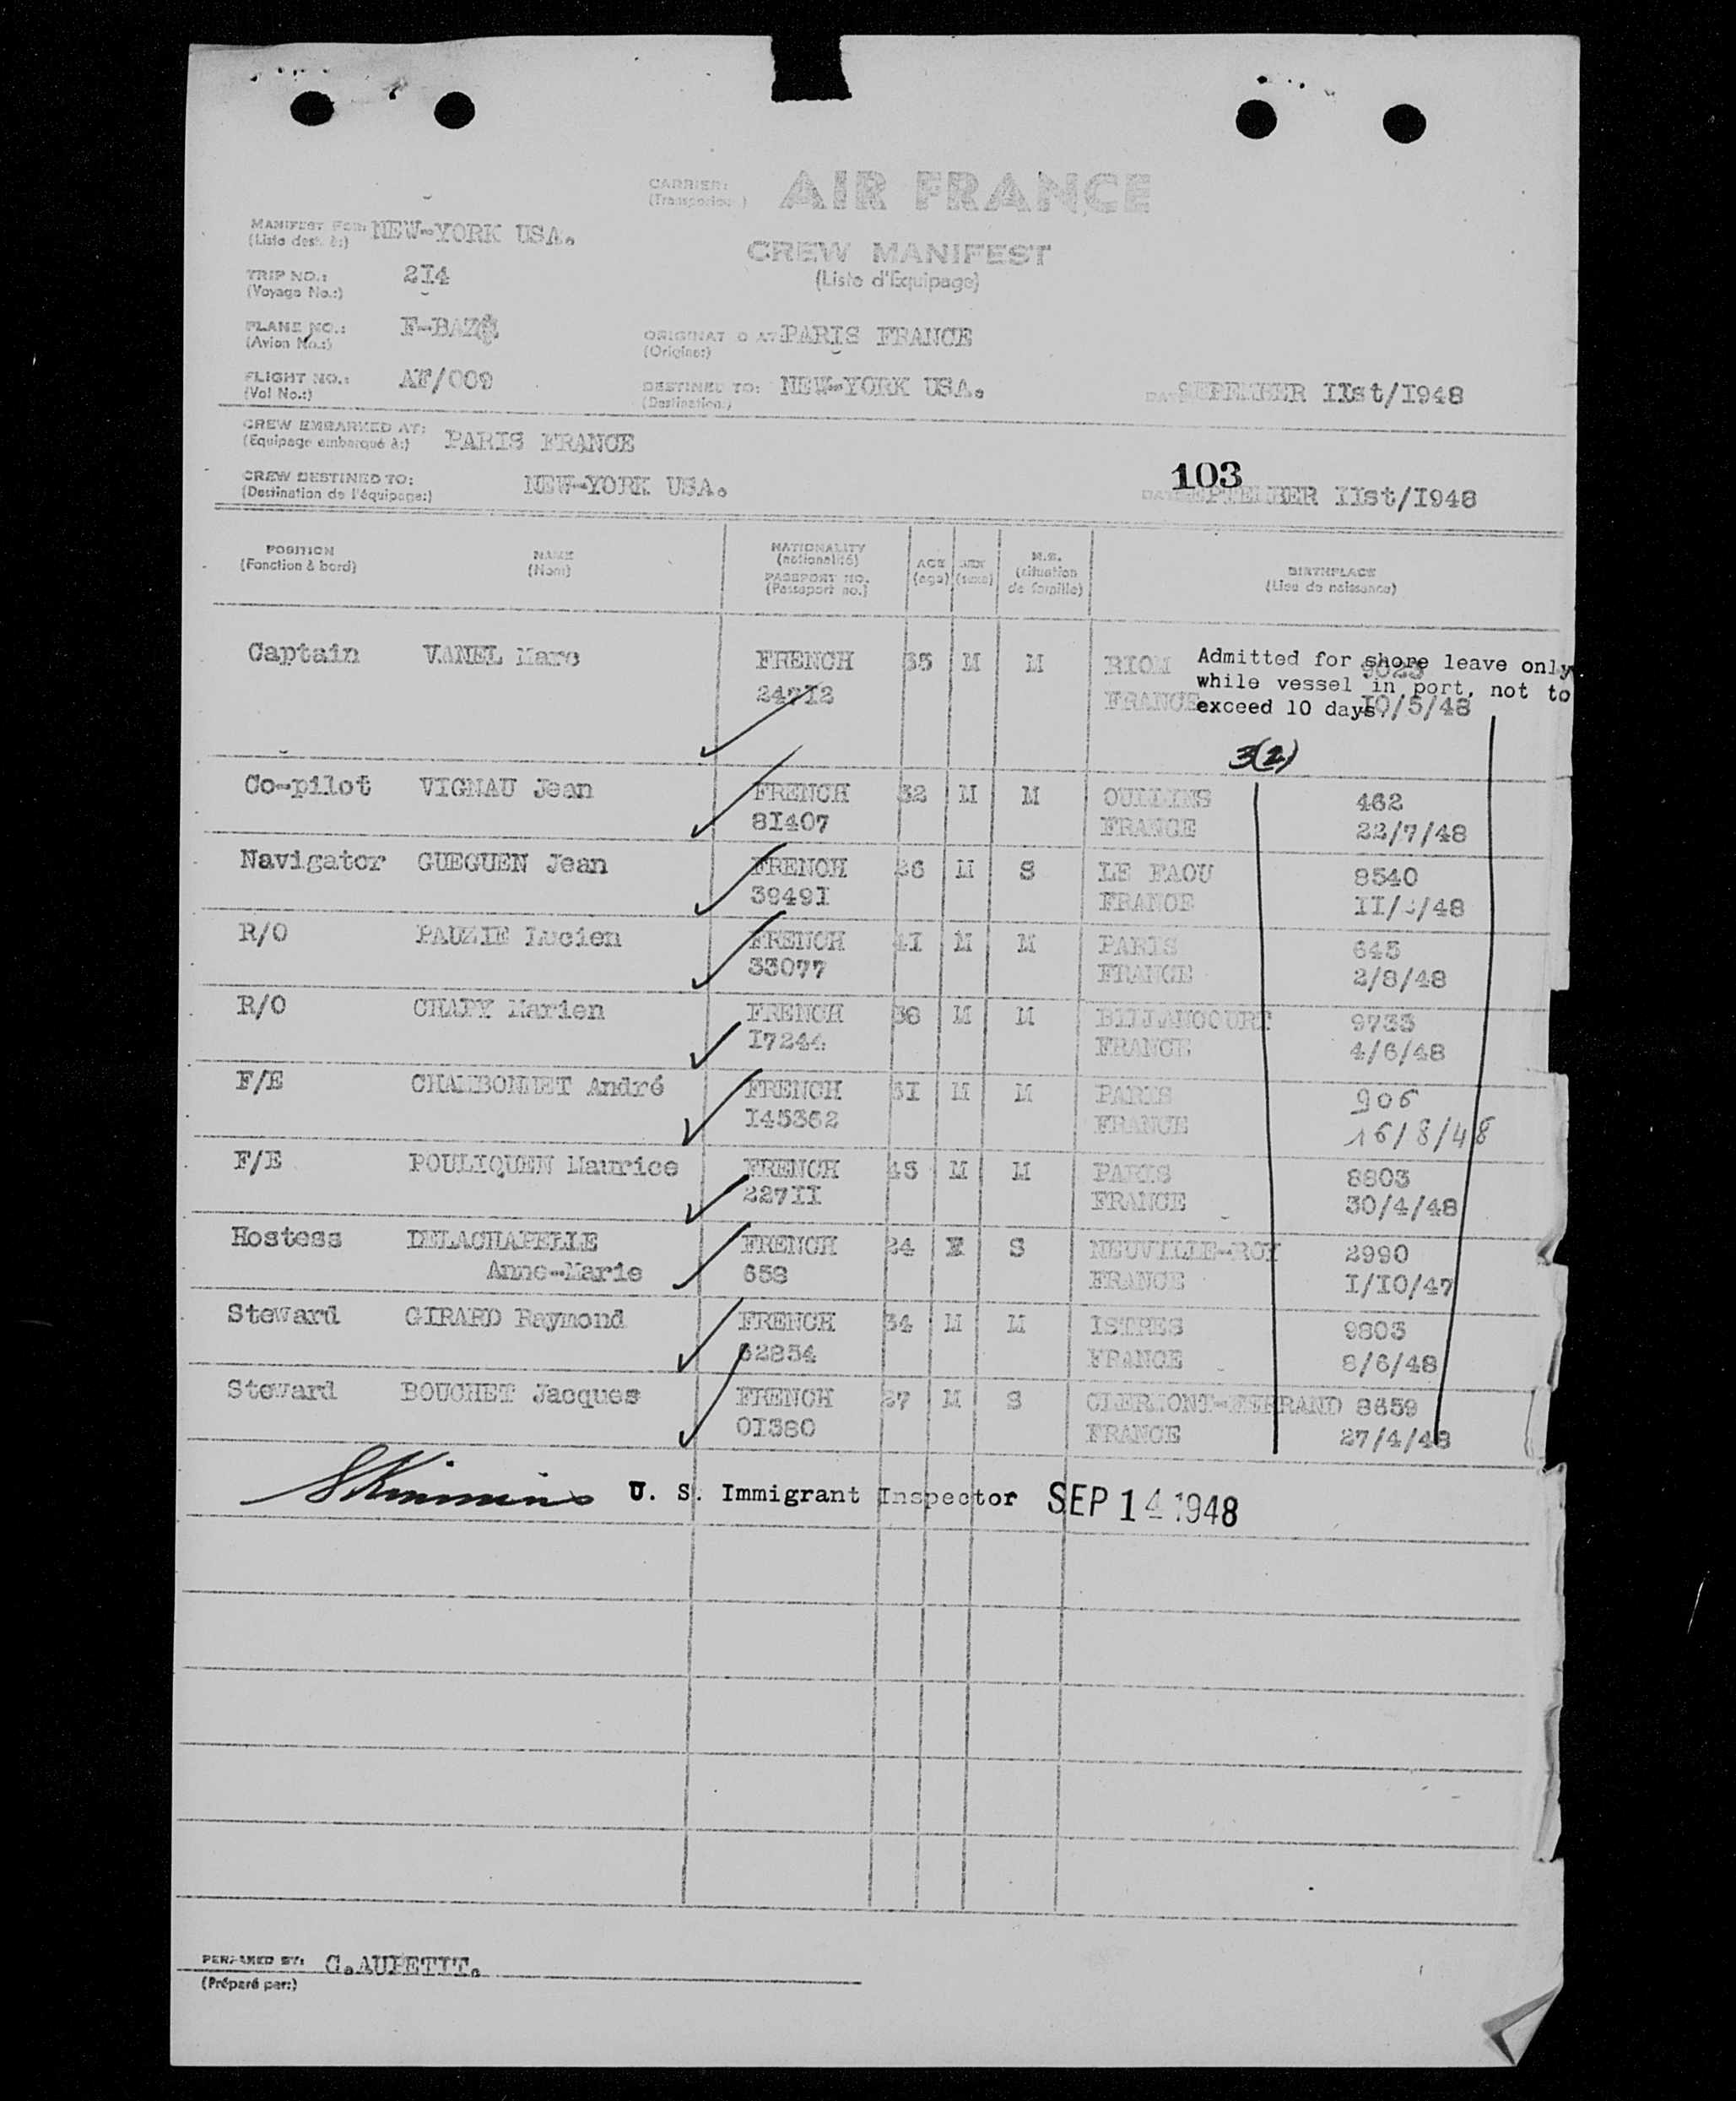 CARRIER: AIR FRANCE
(Transporteur)
MANIFEST FOR: NEW-YORK USA.
(Liste dest. à:)
CREW MANIFEST
(Liste d'Equipage)
TRIP NO.: 2I4
(Voyage No.:)
PLANE NO.: F-BAZ
(Avion No.:)
ORIGINAT D AT PARIS FRANCE
(Origine:)
FLIGHT NO.: AF/009
(Vol No.:)
DESTINED TO: NEW-YORK USA.
(Destination:)
DATE SEPEMBER IIst/I948
CREW EMBARKED AT: PARIS FRANCE
(Equipage embarqué à:)
CREW DESTINED TO: NEW-YORK USA.
(Destination de l'équipage:)
103
DATE SEPTEMBER IIst/I948
POSITION NAME NATIONALITY AGE SEX M.S. BIRTHPLACE
(Fonction à bord) (Nom) (nationalité) (age) (sexe) (situation de famille) (Lieu de naissance)
PASSPORT NO.
(Passeport no.)
Captain VANEL Marc FRENCH 35 M M RIOM 9023
247I2 FRANCE I0/5/48
Admitted for shore leave only
while vessel in port, not to
exceed 10 days.
3(2)
Co-pilot VIGNAU Jean FRENCH 32 M M OULLINS 462
8I407 FRANCE 22/7/48
Navigator GUEGUEN Jean FRENCH 26 M S LE FAOU 8540
3949I FRANCE II/ /48
R/O PAUZIE Lucien FRENCH 4I M M PARIS 645
33077 FRANCE 2/8/48
R/O CHAPY Marien FRENCH 38 M M BILLANCOURT 9733
I7244 FRANCE 4/6/48
F/E CHAMBONNET André FRENCH 3I M M PARIS 906
I45362 FRANCE 16/8/48
F/E POULIQUEN Maurice FRENCH 45 M M PARIS 8803
227II FRANCE 30/4/48
Hostess DELACHAPELLE FRENCH 24 F S NEUVILLE-ROY 2990
Anne-Marie 658 FRANCE I/I0/47
Steward GIRARD Raymond FRENCH 34 M M ISTRES 9803
62854 FRANCE 8/6/48
Steward BOUCHET Jacques FRENCH 27 M S CLERMONT-FERRAND 8659
0I380 FRANCE 27/4/48
U. S. Immigrant Inspector SEP 14 1948
PERPARED BY: G.AUPETIT.
(Préparé par:)